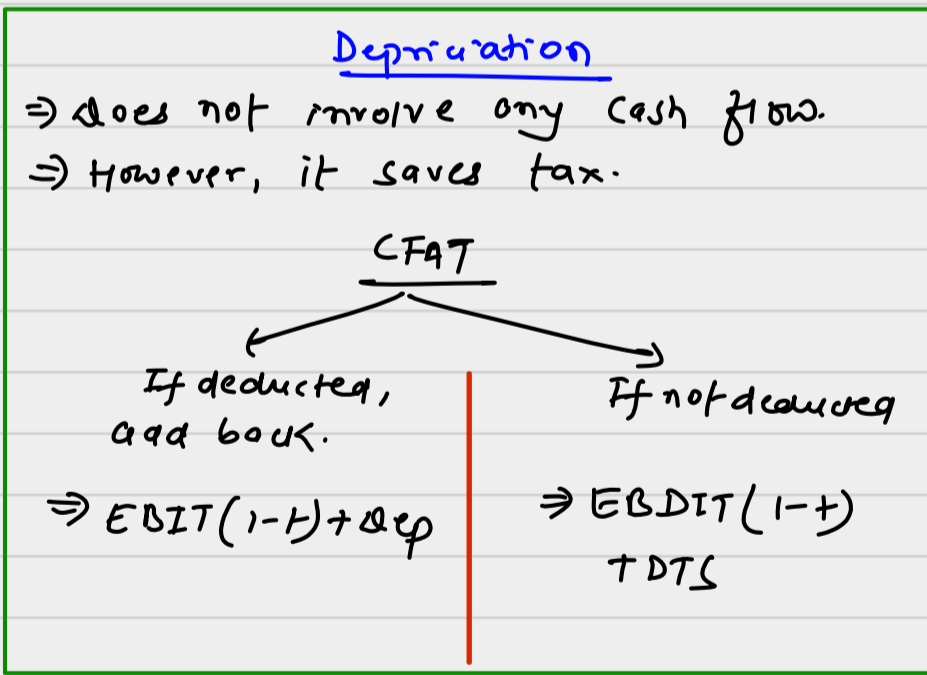 Depriciation
⇒ Does not involve any cash flow.
⇒ However, it saves tax.
CFAT
If deducted,
add back.
⇒ EBIT(1-t)+Dep
If not deducted
⇒ EBDIT(1-t)
+ DTS